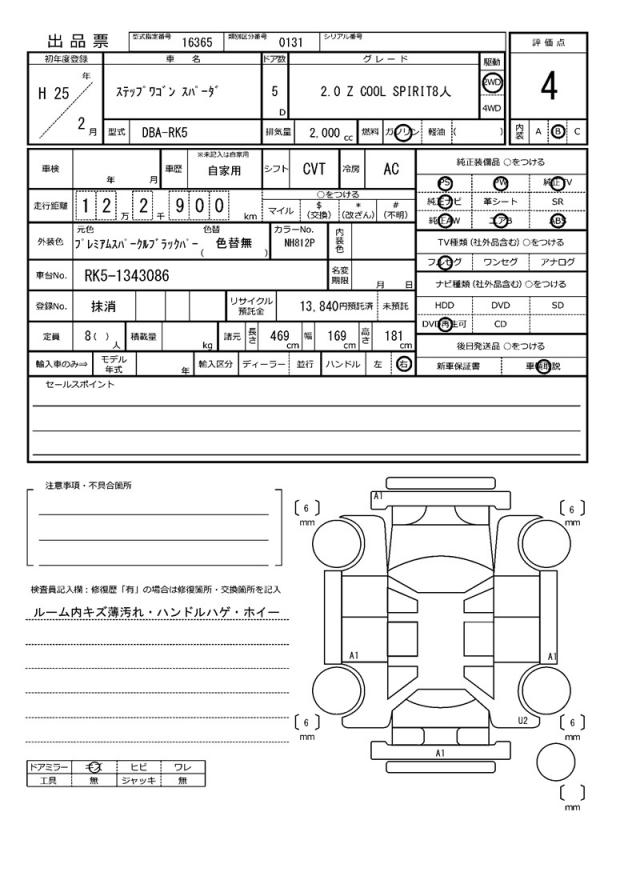 出品票
型式指定番号 16365 類別区分番号 0131 シリアル番号
初年度登録 車名 ドア数 グレード 駆動 評価点
H 25 年 2 月
ステップワゴン スパーダ 5 D 2.0 Z COOL SPIRIT8人 2WD 4WD 4
型式 DBA-RK5 排気量 2,000 cc 燃料 ガソリン 軽油 ( ) 内装 A B C
車検 年 月 車歴 ※未記入は自家用 自家用 シフト CVT 冷房 AC
走行距離 1 2 万 2 千 9 0 0 km
○をつける
マイル $(交換) *(改ざん) #(不明)
外装色 元色 プレミアムスパークルブラックパー 色替 ( 色替無 ) カラーNo. NH812P 内装色
車台No. RK5-1343086 名変期限 月 日
登録No. 抹消 リサイクル預託金 13,840円預託済 未預託
定員 8( ) 人 積載量 kg 諸元 長さ 469 cm 幅 169 cm 高さ 181 cm
輸入車のみ⇒ モデル年式 年 輸入区分 ディーラー 並行 ハンドル 左 右
純正装備品 ○をつける
PS PW 純正TV
純正ナビ 革シート SR
純正AW エアB ABS
TV種類(社外品含む) ○をつける
フルセグ ワンセグ アナログ
ナビ種類(社外品含む) ○をつける
HDD DVD SD
DVD再生可 CD
後日発送品 ○をつける
新車保証書 車輌取説
セールスポイント
注意事項・不具合箇所
検査員記入欄：修復歴「有」の場合は修復箇所・交換箇所を記入
ルーム内キズ薄汚れ・ハンドルハゲ・ホイー
ドアミラー キズ ヒビ ワレ
工具 無 ジャッキ 無
A1
[ 6 ] mm
[ 6 ] mm
A1
A1
U2
[ 6 ] mm
[ 6 ] mm
A1
[ ] mm